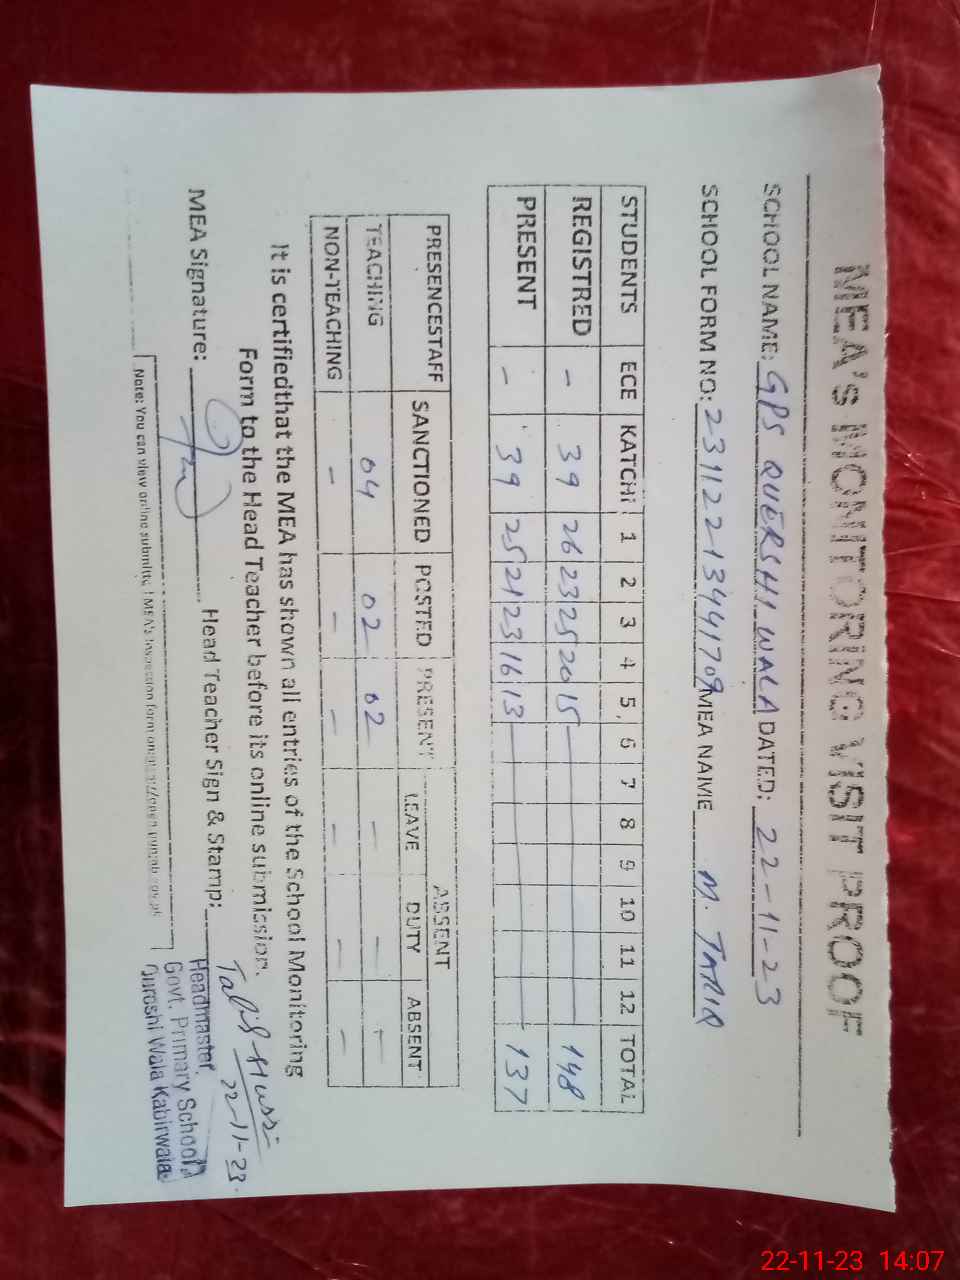 MEA's MONITORING VISIT PROOF
SCHOOL NAME: GPS QUERSHI WALA DATED: 22-11-23
SCHOOL FORM NO: 23112213441709 MEA NAME M. TARIQ
STUDENTS ECE KATCHI 1 2 3 4 5 6 7 8 9 10 11 12 TOTAL
REGISTRED - 39 26 23 25 20 15 148
PRESENT - 39 25 21 23 16 13 137
PRESENCESTAFF SANCTIONED POSTED PRESENT ABSENT
LEAVE DUTY ABSENT
TEACHING 04 02 02 - - -
NON-TEACHING - - - - - -
It is certifiedthat the MEA has shown all entries of the School Monitoring
Form to the Head Teacher before its online submission.
MEA Signature: Head Teacher Sign & Stamp:
22-11-23
Headmaster,
Govt. Primary School
Quroshi Wala Kabirwala
Note: You can view online submitted MEA's Inspection form on
22-11-23 14:07